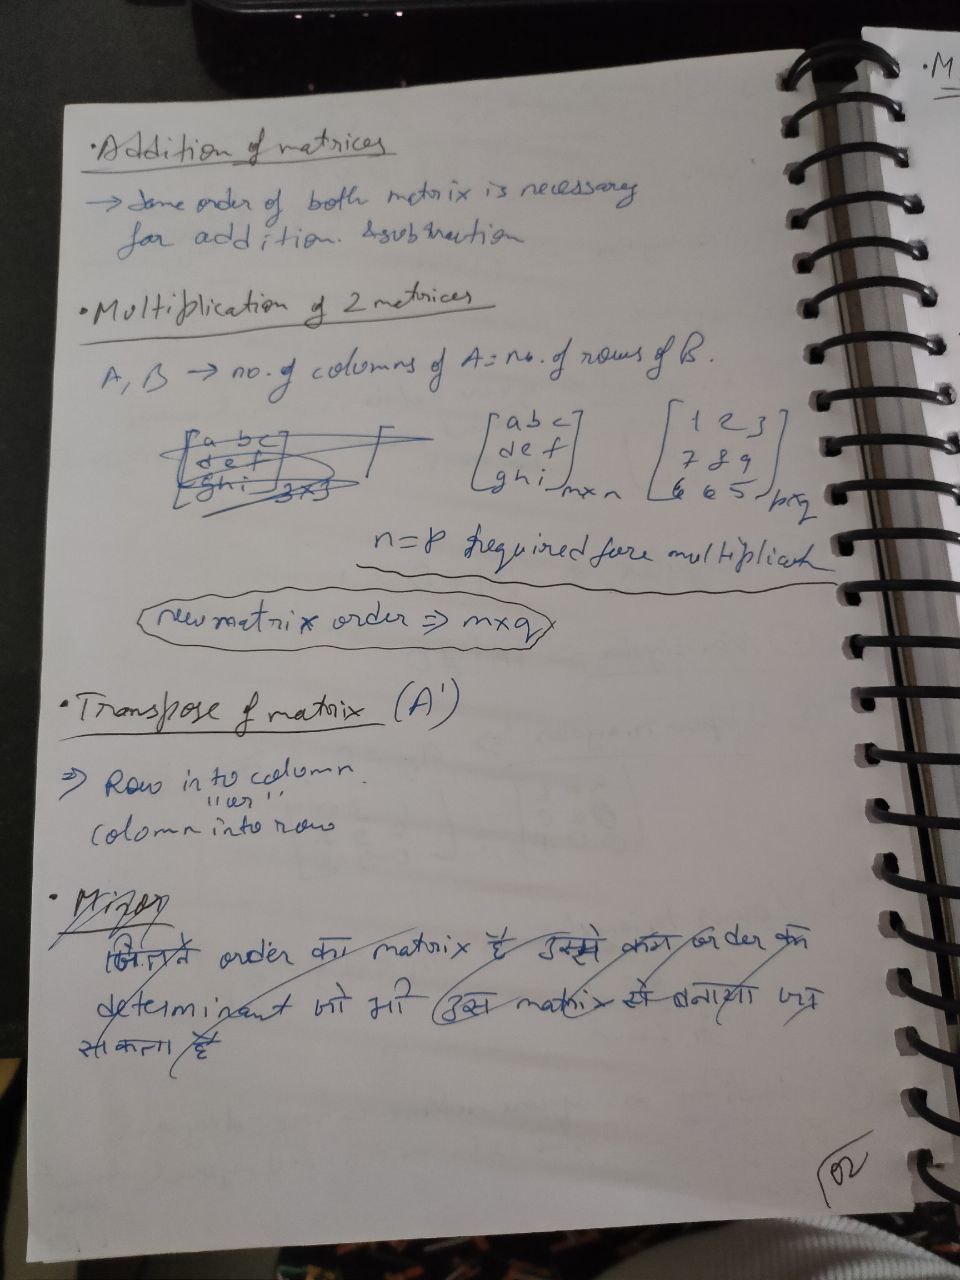 ·M
·Addition of matrices
→ Same order of both matrix is necessary
for addition. & subtraction
·Multiplication of 2 matrices
A, B → no. of columns of A = no. of rows of B.
[a b c] [ [a b c] [1 2 3]
[d e f] [d e f] [7 8 9]
[g h i] 3×3 [g h i] m×n [6 6 5] p×q
n=p required fore multiplicat
new matrix order ⇒ m×q
·Transpose of matrix (A')
⇒ Row into column.
"or"
column into row
·Minor
जितने order का matrix है उससे कम order का
determinant जो भी उस matrix से बनाया जा
सकता है
02